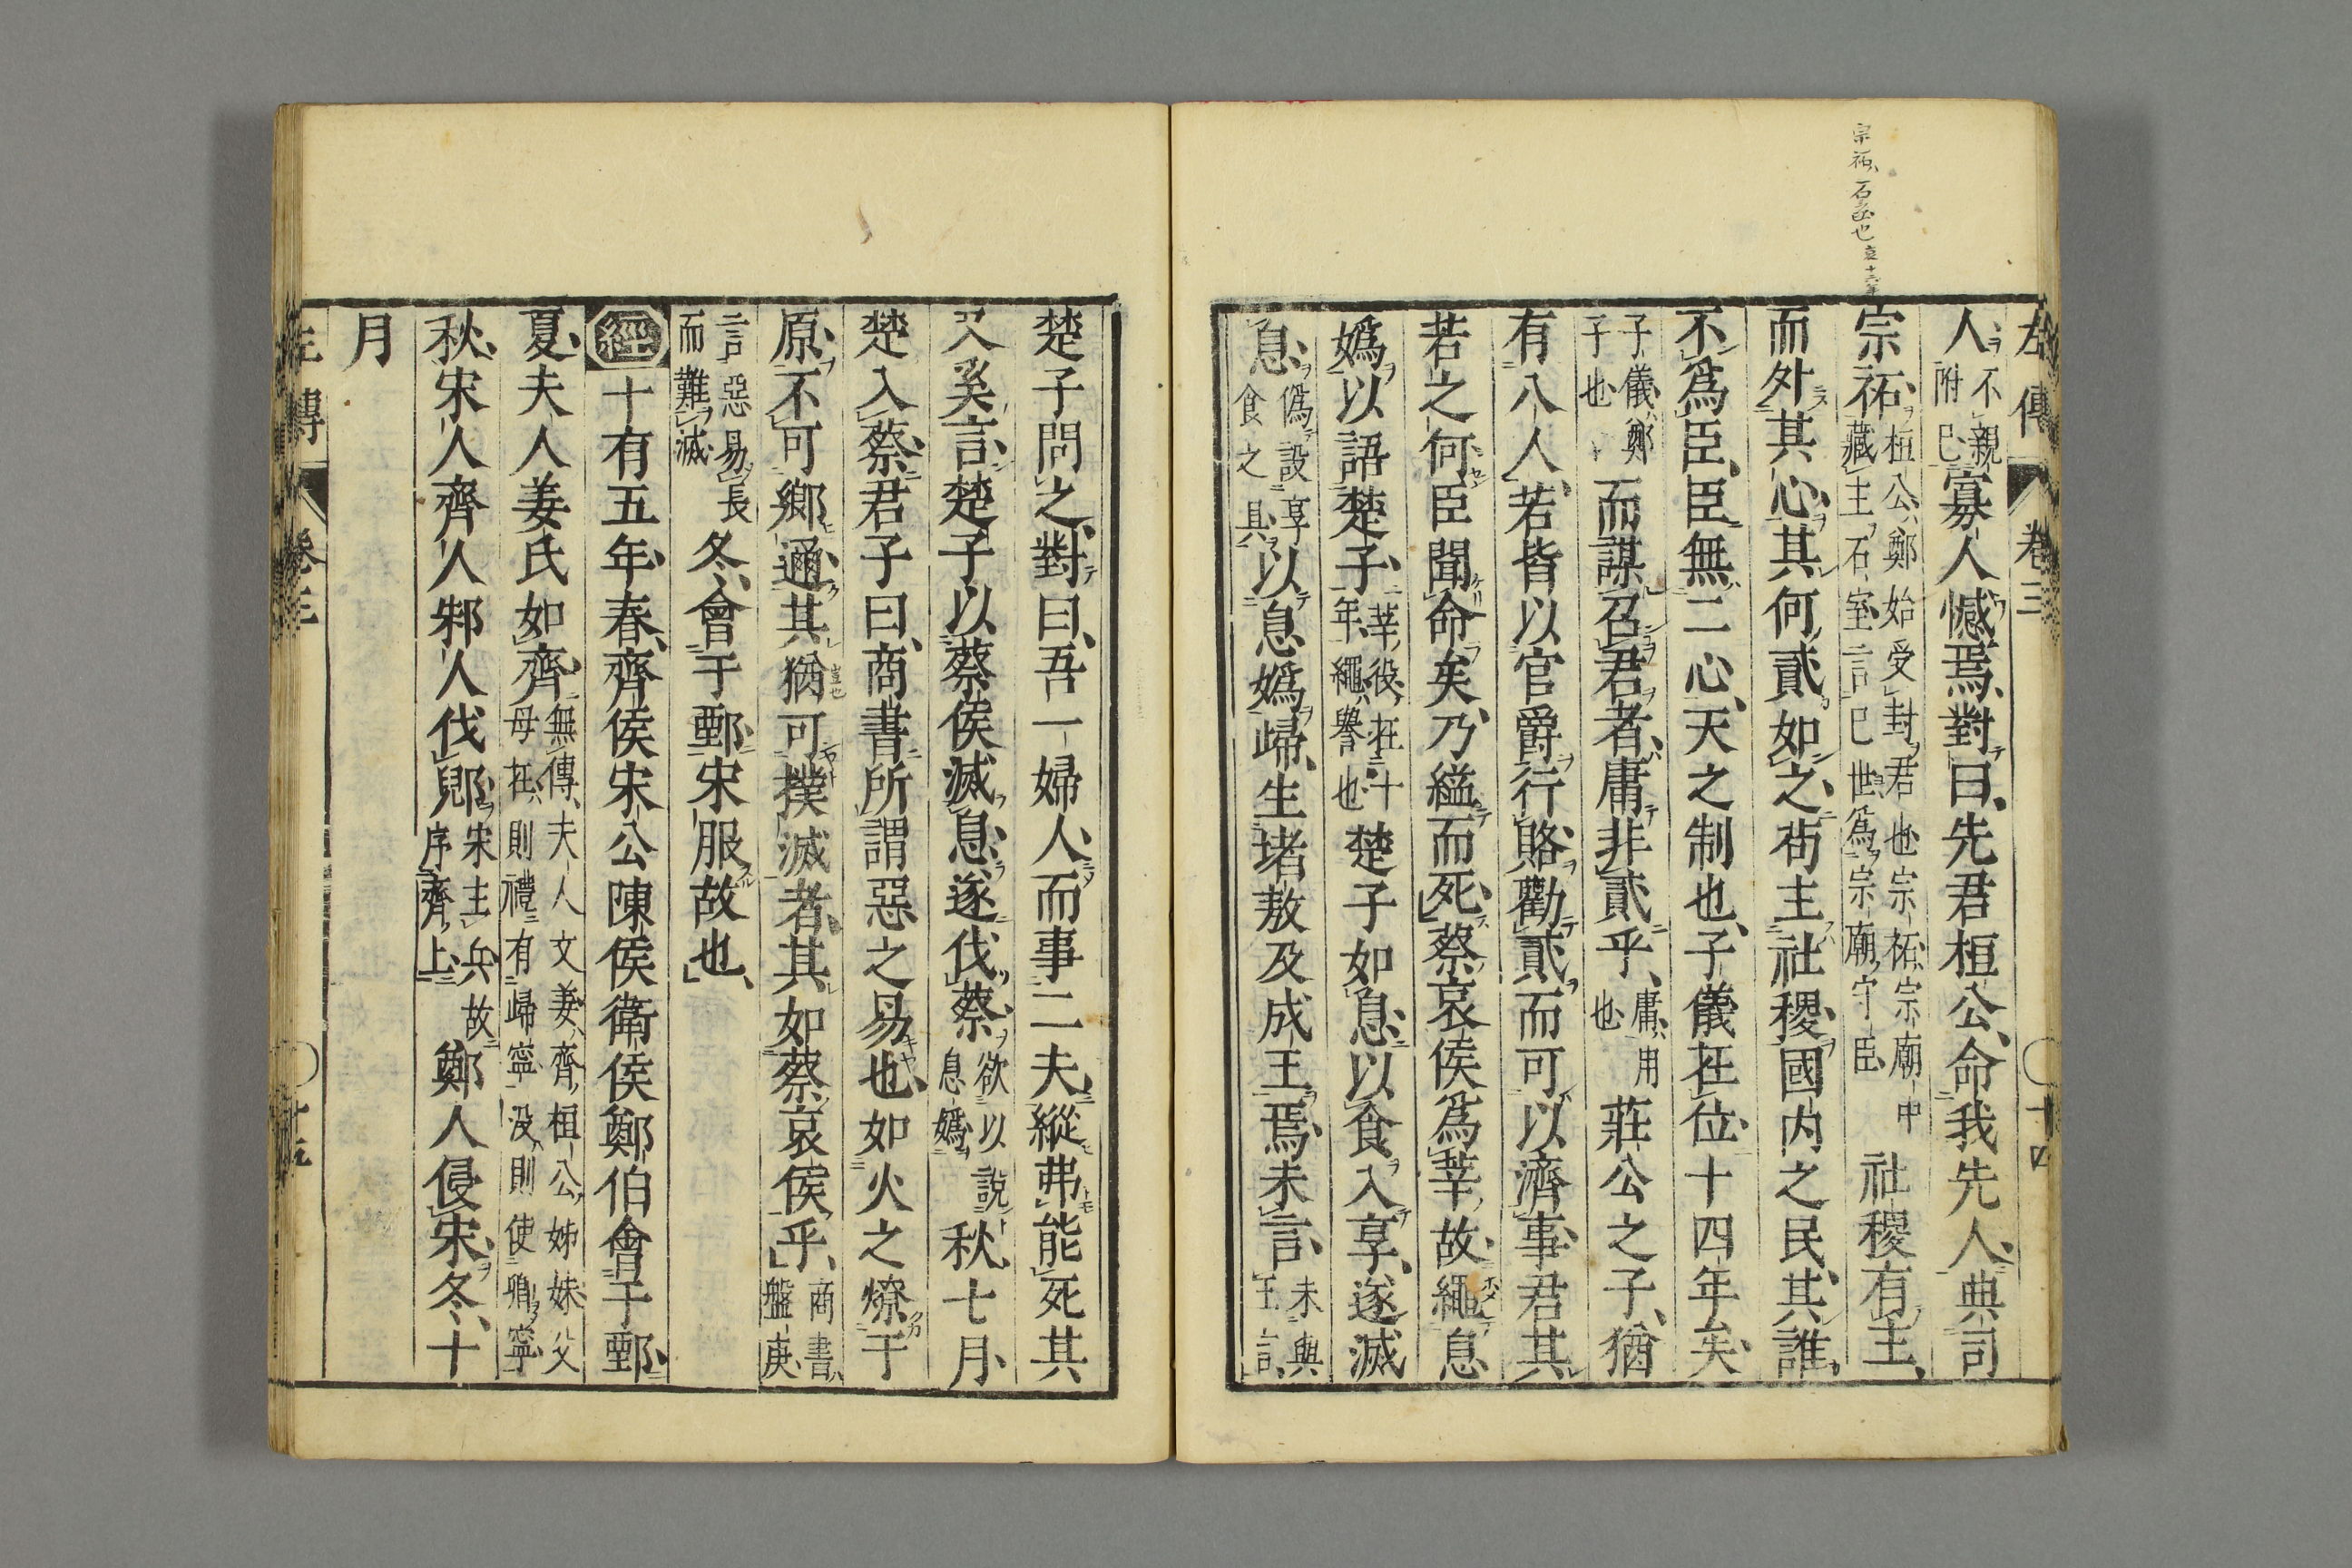 左傳 卷三 ○十四
宗祏石函也哀十六年
人不親附己寡人憾焉對曰先君桓公命我先人典司
宗祏桓公鄭始受封君也宗祏宗廟中藏主石室言己世爲宗廟守臣社稷有主
而外其心其何貳如之苟主社稷國内之民其誰
不爲臣臣無二心天之制也子儀在位十四年矣
子儀鄭子也而謀召君者庸非貳乎庸用也莊公之子猶
有八人若皆以官爵行賂勸貳而可以濟事君其
若之何臣聞命矣乃縊而死蔡哀侯爲莘故繩息
嬀以語楚子莘役在十年繩譽也楚子如息以食入享遂滅
息僞設享食之具以息嬀歸生堵敖及成王焉未言未與王言
楚子問之對曰吾一婦人而事二夫縱弗能死其
又奚言楚子以蔡侯滅息遂伐蔡欲以說息嬀秋七月
楚入蔡君子曰商書所謂惡之易也如火之燎于
原不可鄉邇其猶可撲滅者其如蔡哀侯乎商書盤庚
言惡易長而難滅冬會于鄄宋服故也
經十有五年春齊侯宋公陳侯衛侯鄭伯會于鄄
夏夫人姜氏如齊無傳夫人文姜齊桓公姊妹父母在則禮有歸寧没則使卿寧
秋宋人齊人邾人伐郳宋主兵故序齊上鄭人侵宋冬十
月
左傳 卷三 ○十五